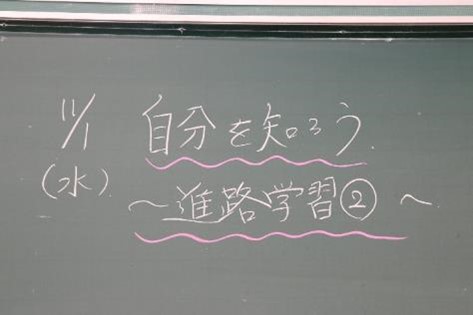 11/1 自分を知ろう
(水) ～進路学習②～